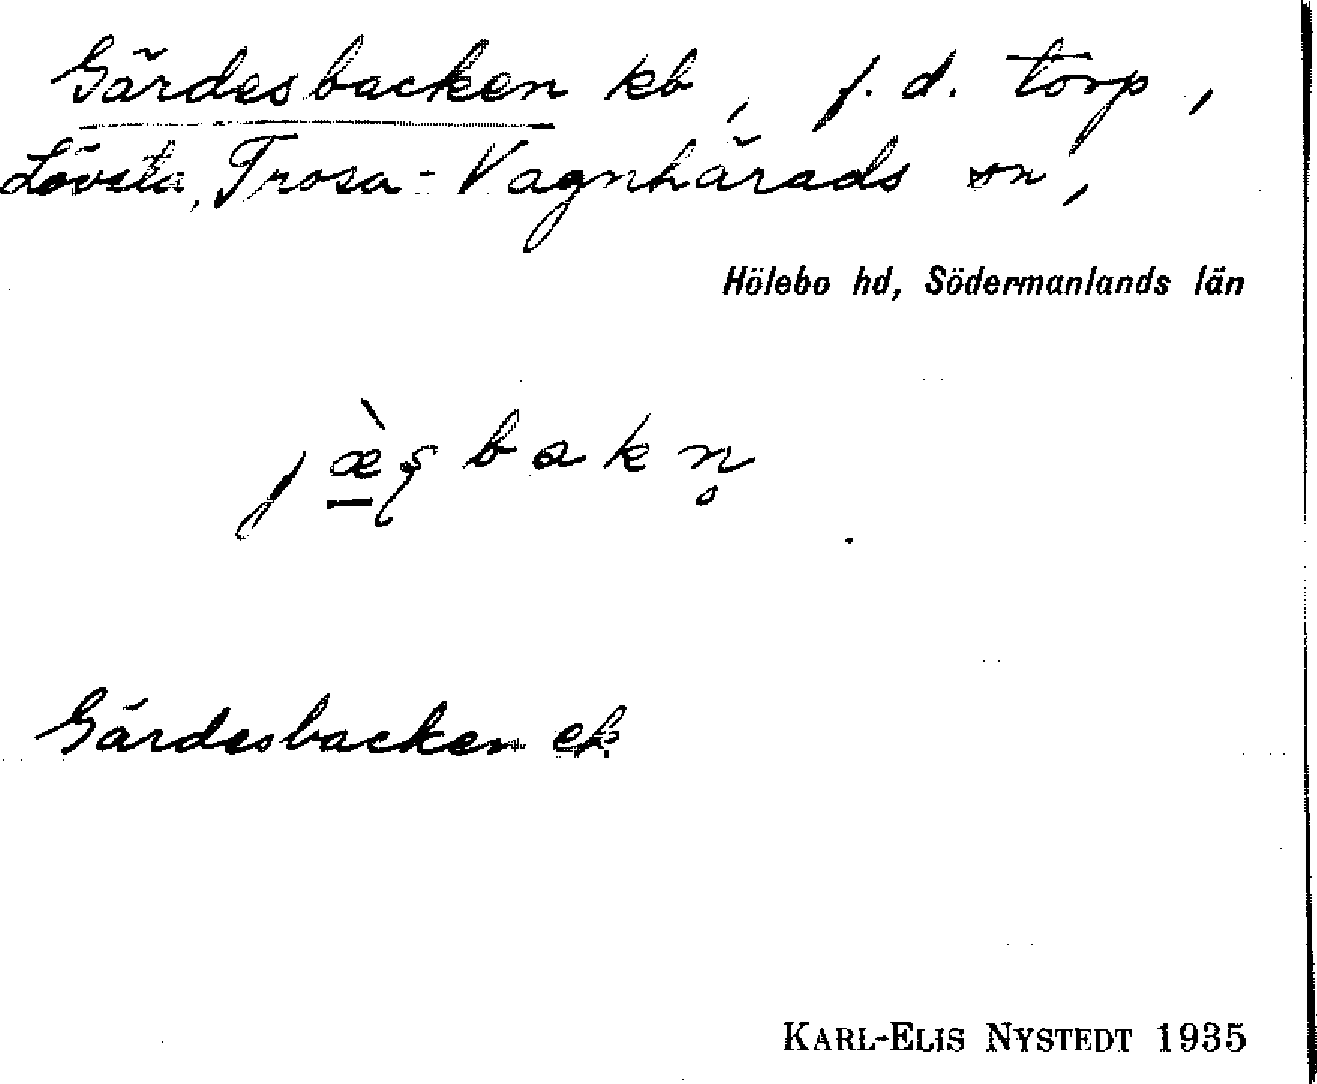 Gärdesbacken kb, f. d. torp,
Lövsta, Trosa-Vagnhärads sn,
Hölebo hd, Södermanlands län
jæ̠̀ʂbakn̥
Gärdesbacken ek
KARL-ELIS NYSTEDT 1935